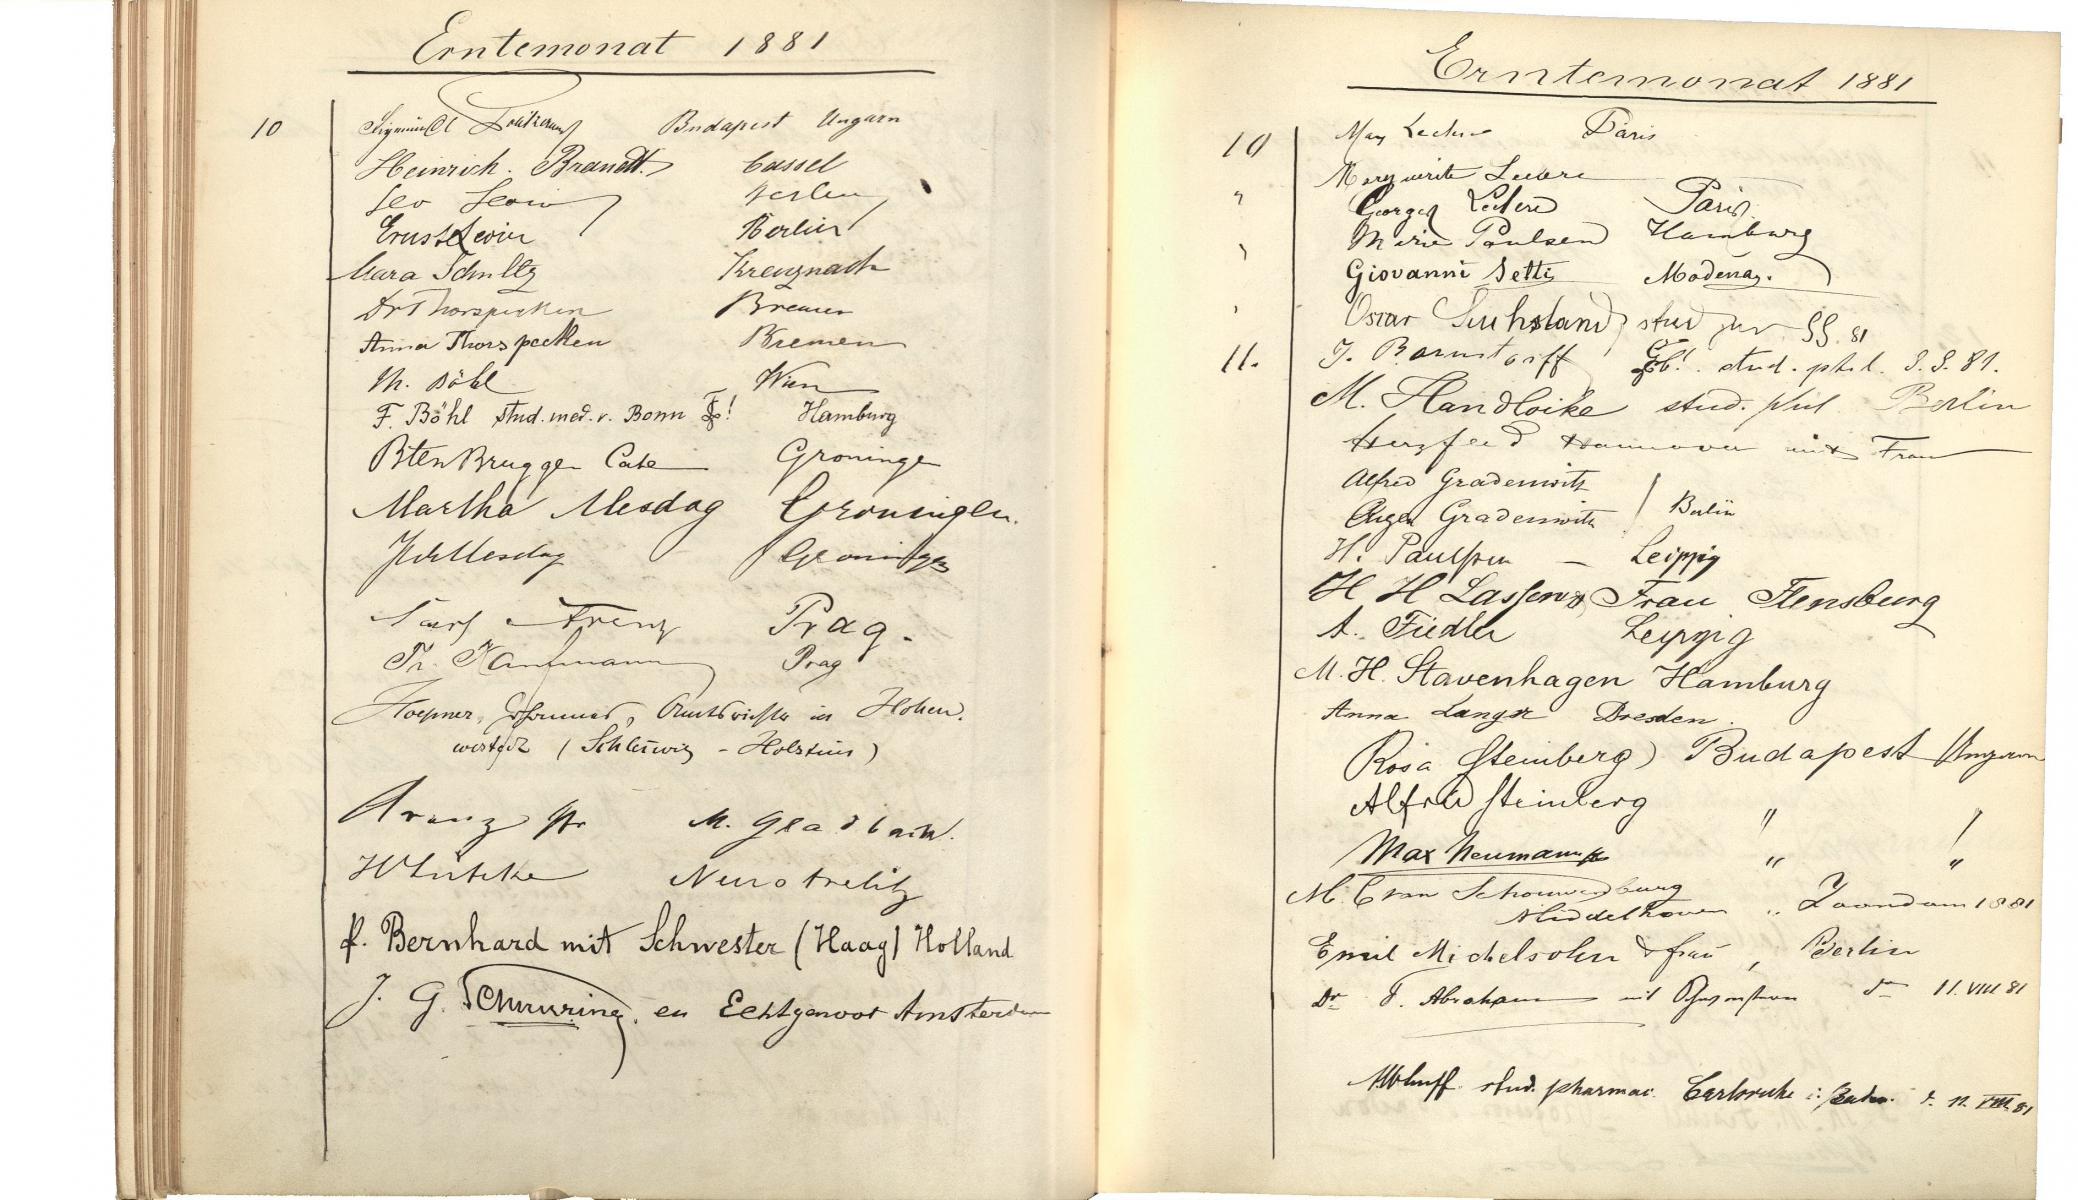 Erntemonat 1881
10 Budapest Ungarn
Heinrich. Brandt. Cassel
Leo Lewin Berlin
Ernst Lewin Berlin
Clara Schultz Kreuznach
Dr Thorspecken Bremen
Anna Thorspecken Bremen
Th. Böhl Wien
F. Böhl stud. med. v. Bonn ! Hamburg
P ten Bruggen Cate Groningen
Martha Mesdag Groningen.
Mesdag Groningen
Prag.
Th. Kaufmann Prag
Hoepner, Amtsrichter in Hohen.
westedt (Schleswig-Holstein)
M. Gladbach.
Neustrelitz
f. Bernhard mit Schwester (Haag) Holland
J. G. Schuuring, en Echtgenoot Amsterdam
Erntemonat 1881
10 Max Leclerc Paris
Marguerite
" Georges Leclerc Paris
Marie Paulsen Hamburg
Giovanni Setti Modena.
Oscar Suhsland, stud jur SS. 81
11. J. Bornstorff stud. phil. S. S. 81.
M. Handloike stud. phil Berlin
Herzfeld Hannover mit Frau
Alfred Gradenwitz
Gradenwitz Berlin
H. Paulssen – Leipzig
H H Lassen & Frau Flensburg
A. Fiedler Leipzig
M. H. Stavenhagen Hamburg
Anna Langer Dresden.
Rosa Steinberg Budapest Ungarn
Alfred Steinberg " "
Max Neumann " "
M. C van Schouwenburg
Middelhoven " Zaandam 1881
Emil Michelsohn & Frau, Berlin
Dr. F. Abraham mit 11. VIII 81
stud. pharmac. Carlsruhe i. Baden. d. 11. VIII. 81